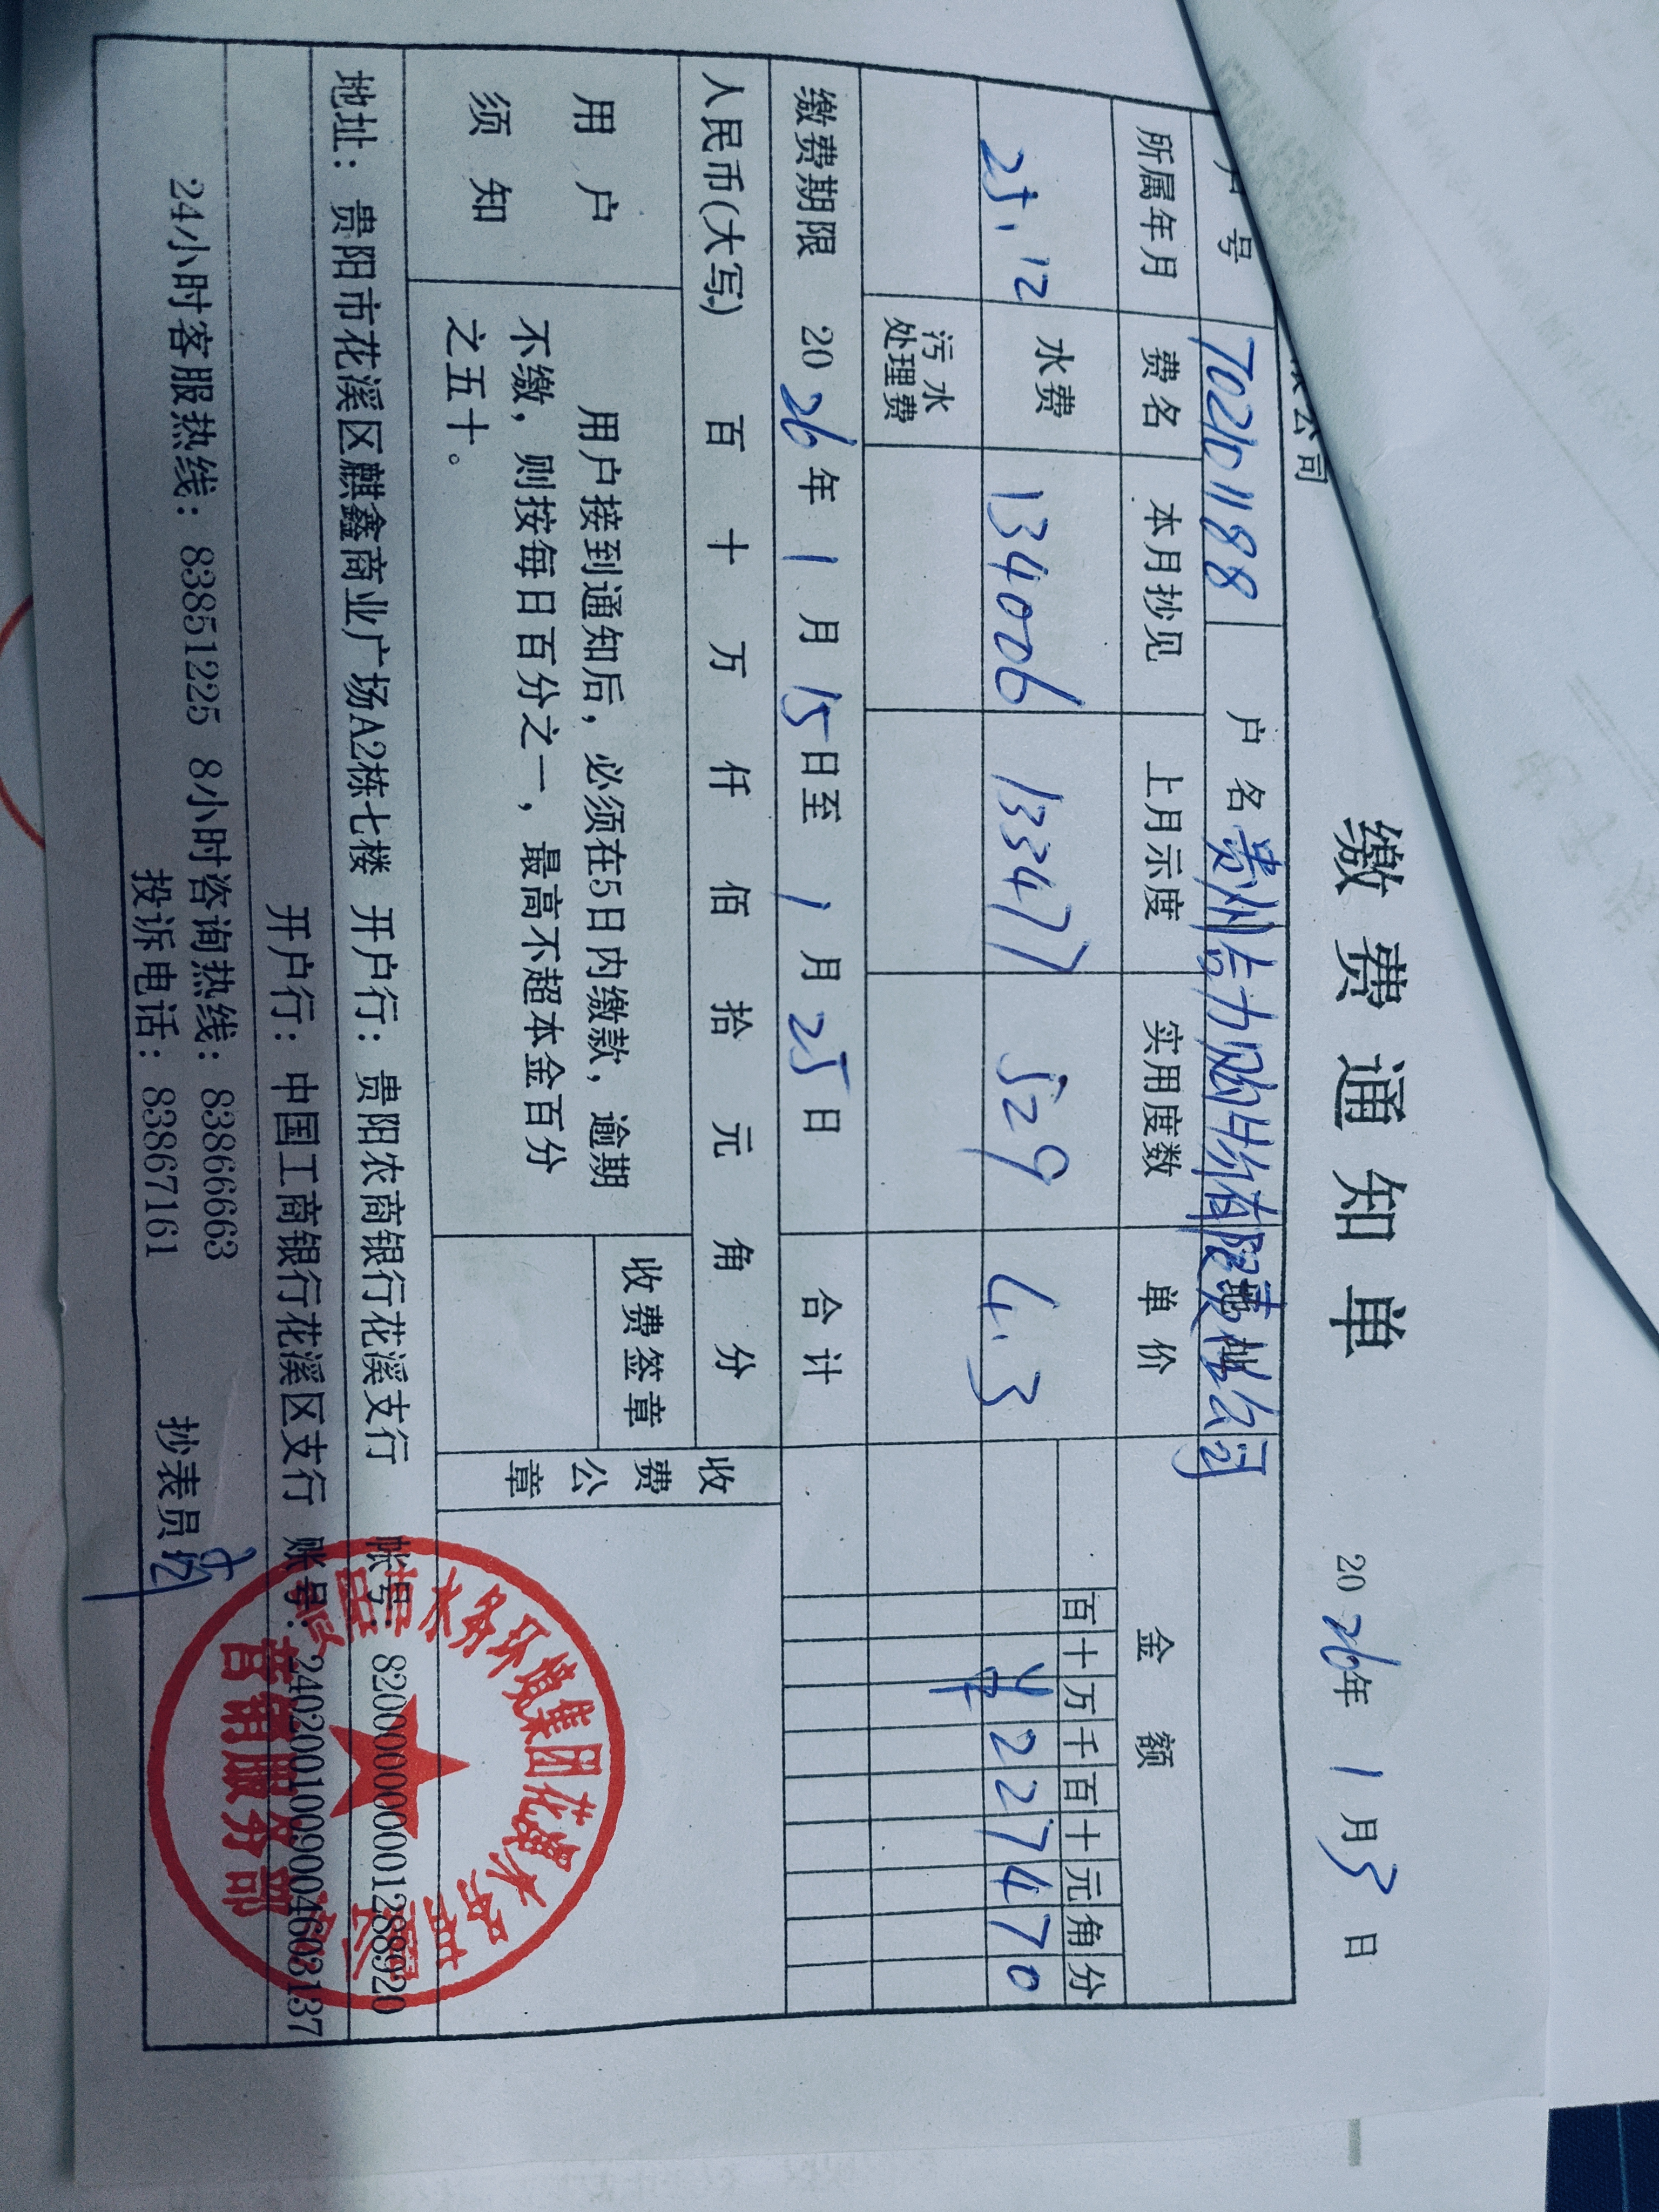 缴费通知单
2026年1月3日
限公司
户号 702101188 户名 贵州吉力购件有限责任公司
所属年月 费名 本月抄见 上月示度 实用度数 单价 金额
百 十 万 千 百 十 元 角 分
25.12 水费 134006 133477 529 4.3 ¥227470
污水处理费
缴费期限 2026年1月15日至1月25日 合计
人民币(大写) 百 十 万 仟 佰 拾 元 角 分
用户须知
用户接到通知后，必须在5日内缴款，逾期
不缴，则按每日百分之一，最高不超本金百分
之五十。
收费签章
收费公章
地址：贵阳市花溪区麒鑫商业广场A2栋七楼 开户行：贵阳农商银行花溪支行 帐号：820000000001288920
开户行：中国工商银行花溪区支行 账号：2402001009004603137
24小时客服热线：83851225 8小时咨询热线：83866663
投诉电话：83867161 抄表员
水务环境集团花溪水务
营销服务部